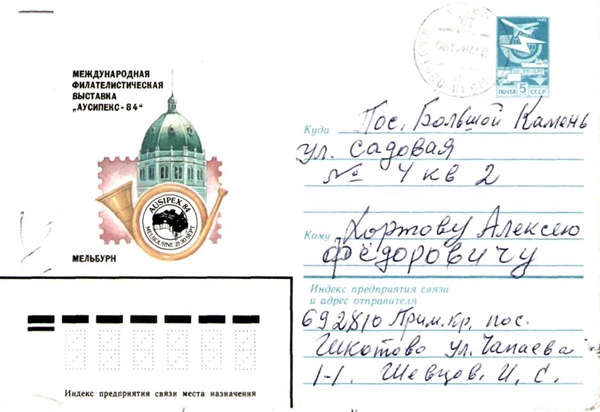 МЕЖДУНАРОДНАЯ
ФИЛАТЕЛИСТИЧЕСКАЯ
ВЫСТАВКА
"АУСИПЕКС-84"
AUSIPEX 84
MELBOURNE 21-30 SEPT.
МЕЛЬБУРН
1982
ПОЧТА 5 СССР
Куда Пос. Большой Камень
ул. Садовая
№ 4 кв 2
Кому Хортову Алексею
Фёдоровичу
Индекс предприятия связи
и адрес отправителя
692810 Прим.кр, пос.
Шкотово ул. Чапаева
1-1. Шевцов. И, С.
Индекс предприятия связи места назначения